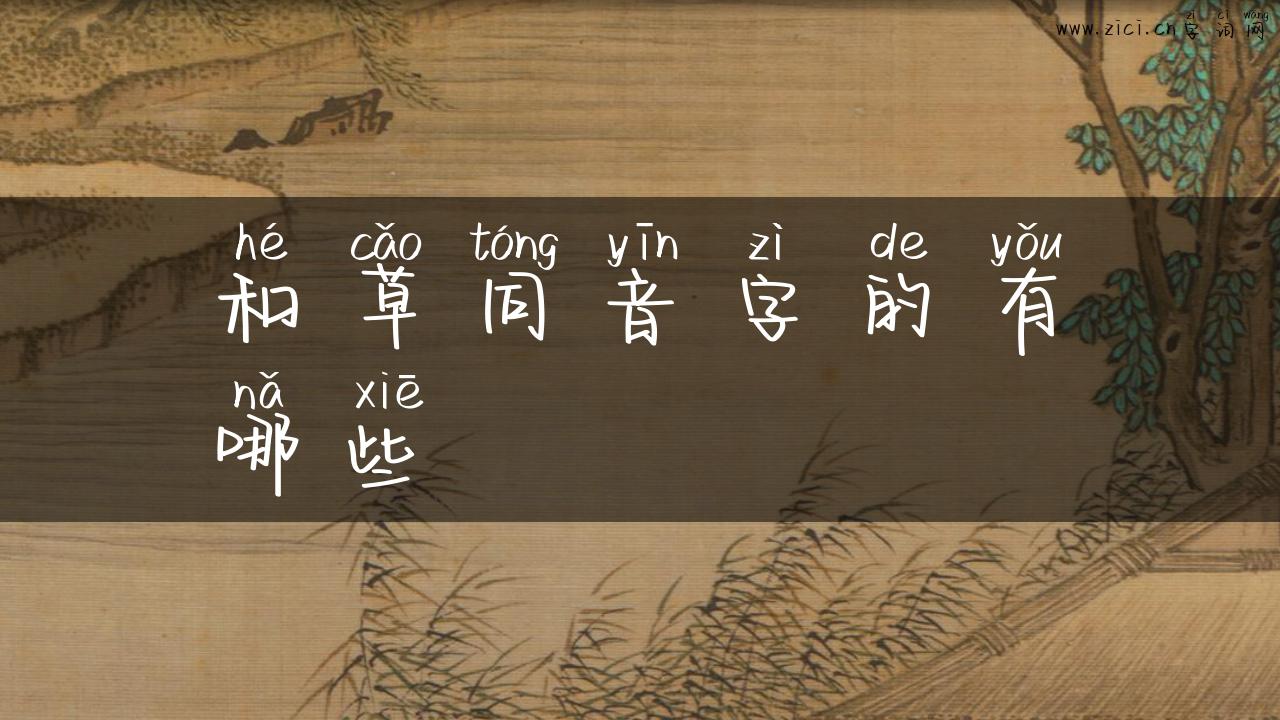 zì cí wǎng
www.zici.cn字词网
hé cǎo tóng yīn zì de yǒu
和草同音字的有
nǎ xiē
哪些